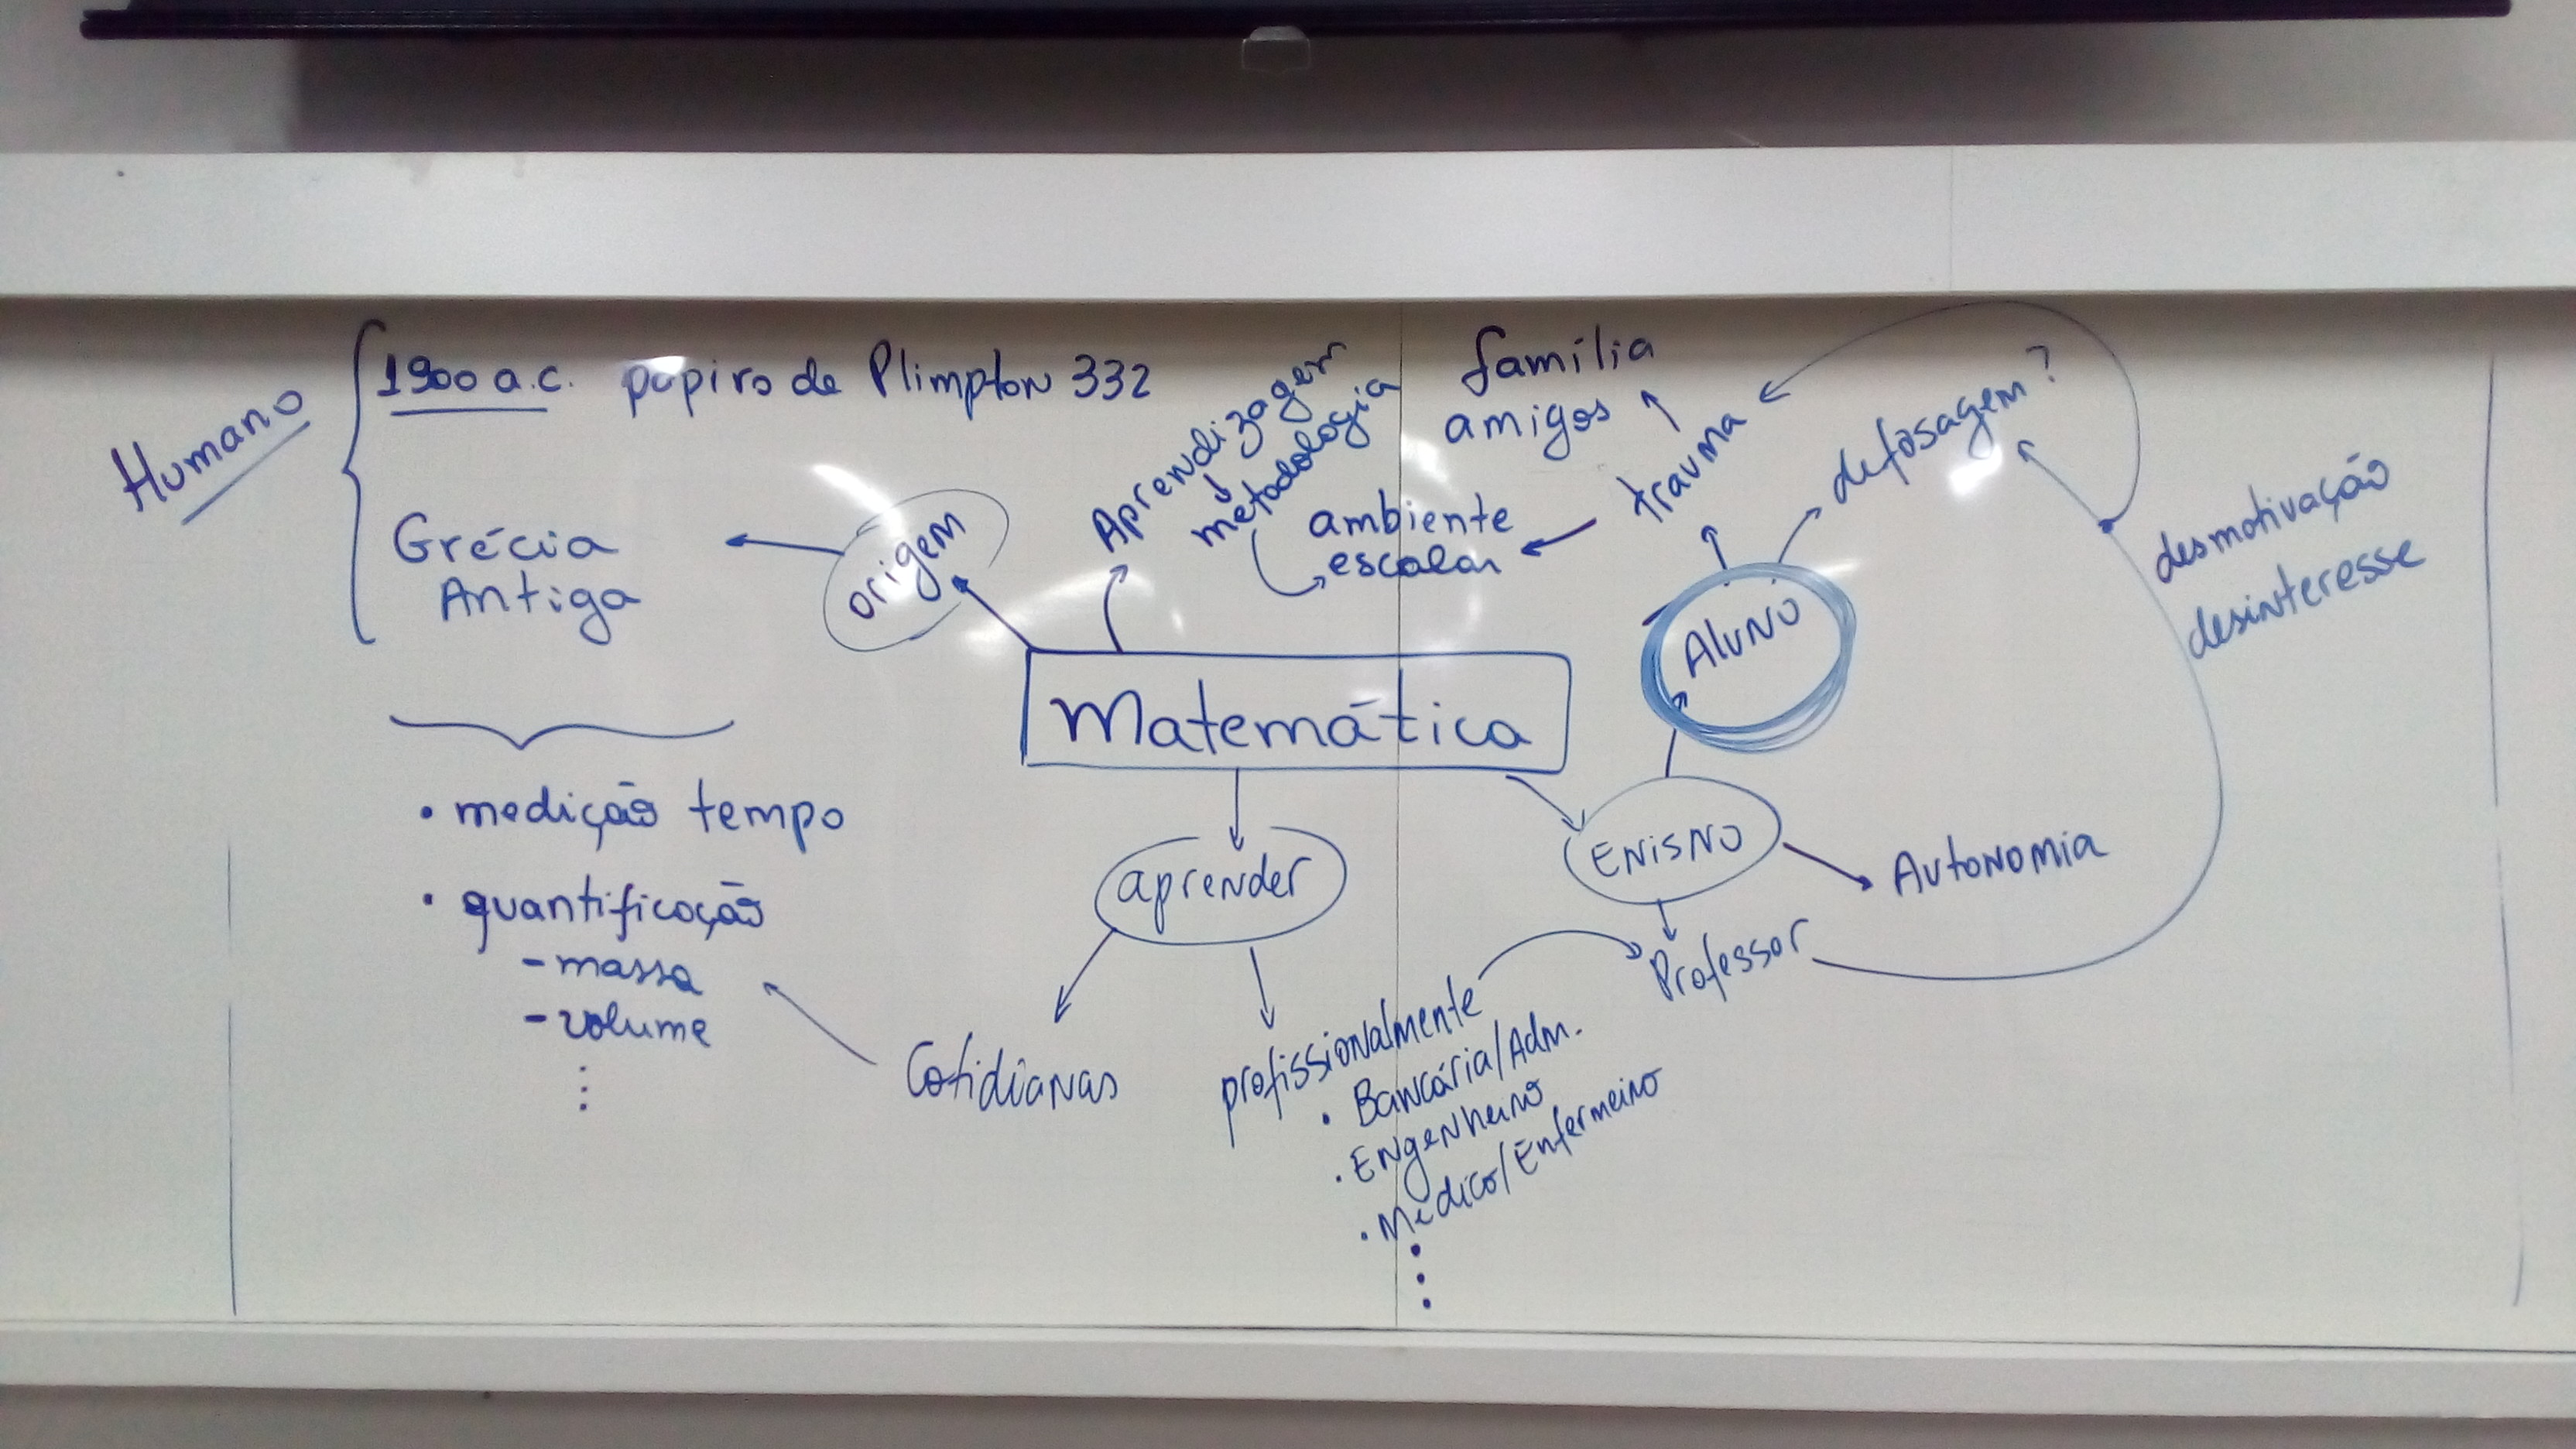 Humano
1900 a.c. papiro de Plimpton 332
Grécia
Antiga
origem
Aprendizagem
metodologia
família
amigos
ambiente
escolar
trauma
defasagem?
desmotivação
desinteresse
Aluno
Matemática
• medição tempo
• quantificação
- massa
- volume
⋮
aprender
Enisno
Autonomia
Professor
Cotidianas
profissionalmente
• Bancária/Adm.
• Engenheiro
• Médico/Enfermeiro
⋮